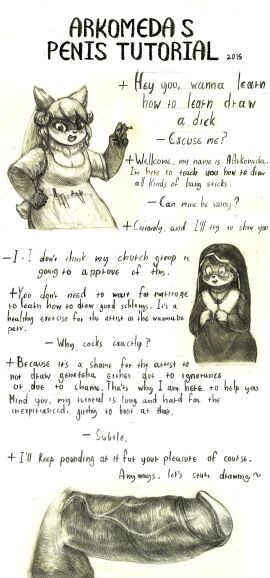 ARKOMEDA S
PENIS TUTORIAL 2015
+ Hey you, wanna learn
how to learn draw
a dick
- Excuse me?
+ Wellkome, my name is AArkomeda.
I'm here to teach you how to draw
all kinds of bang sticks.
- Can mine be veiny?
+ Certainly, and I'll try to show you
- I - I don't think my church group is
going to approve of this.
+ You don't need to wait for marriage
to learn how to draw good schlongs. It's a
healthy exercise for the artist or the wannabe
perv.
- Why cocks exactly?
+ Because it's a shame for the artist to
not draw genetelia either due to ignorance
or due to shame. That's why I am here to help you
Mind you, my tutorial is long and hard for the
inexperienced. girthy to boot at that.
- Subtle.
+ I'll keep pounding at it for your pleasure of course.
Anyways, let's start drawing ~